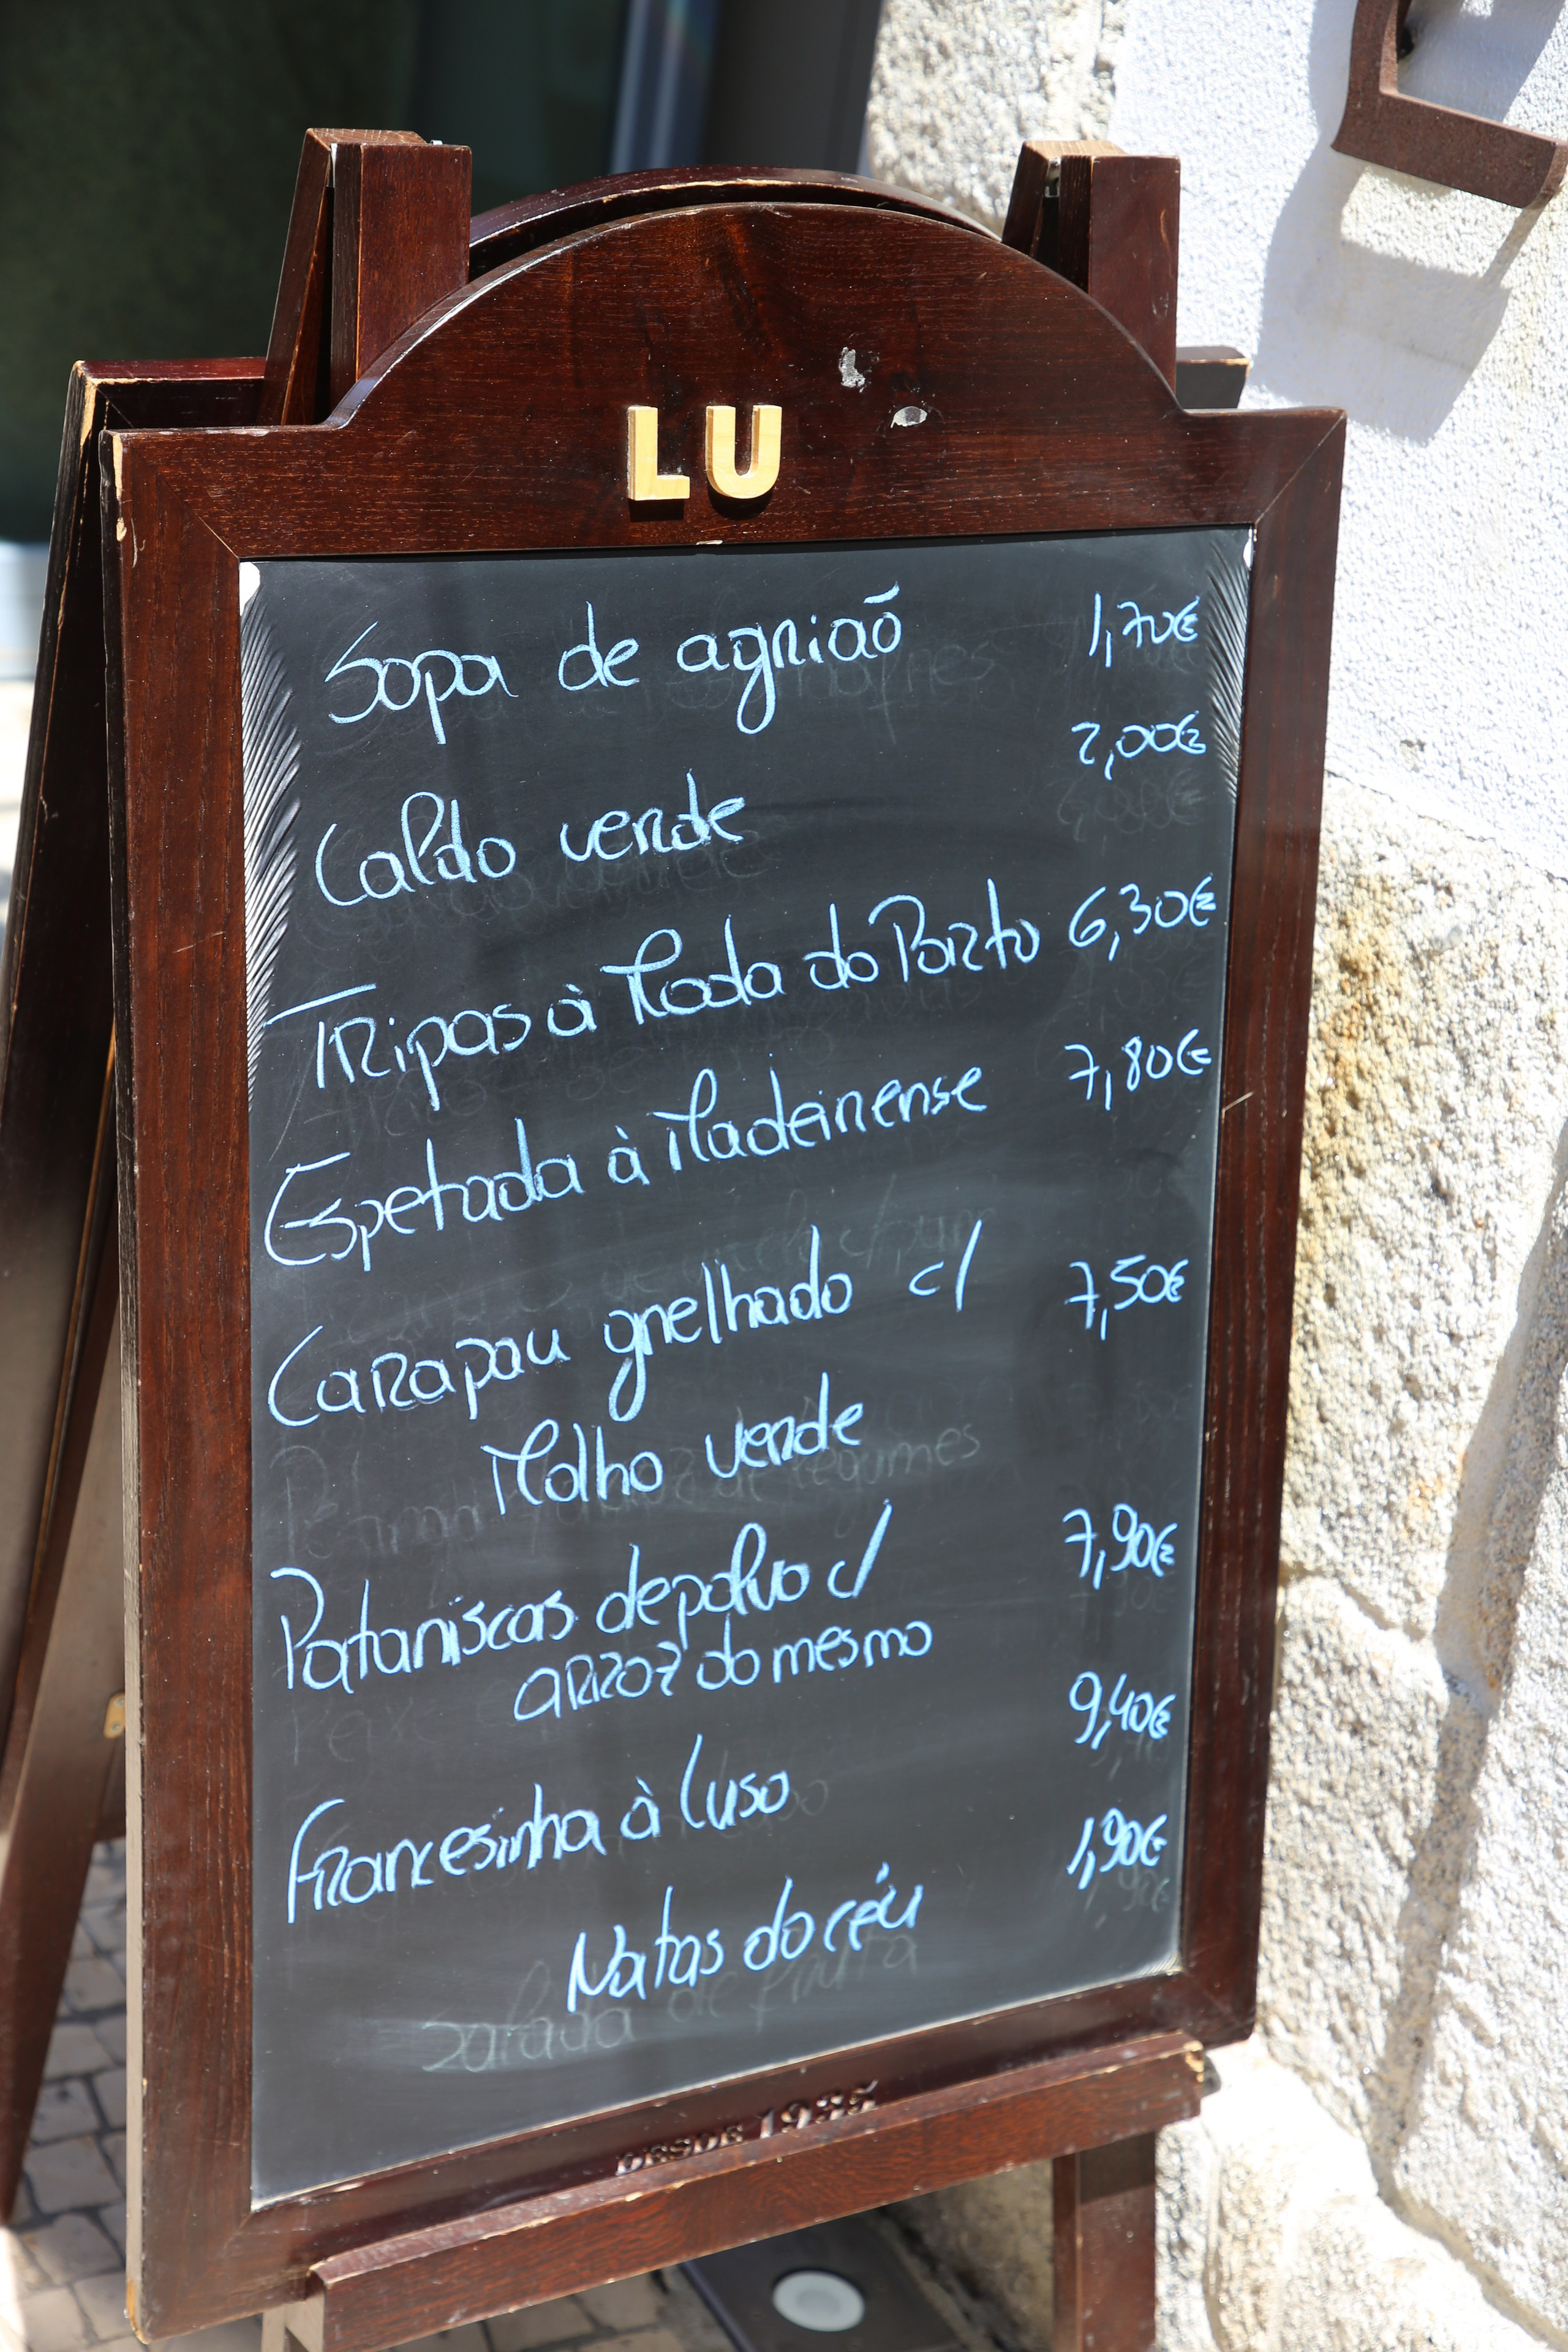 LU
Sopa de agrião 1,70€
Caldo verde 2,00€
Tripas à Moda do Porto 6,30€
Espetada à Madeirense 7,80€
Carapau grelhado c/ 7,50€
Molho verde
Pataniscas de polvo c/ 7,90€
arroz do mesmo
Francesinha à Luso 9,40€
Natas do céu 1,90€
Salada de fruta
DESDE 1935